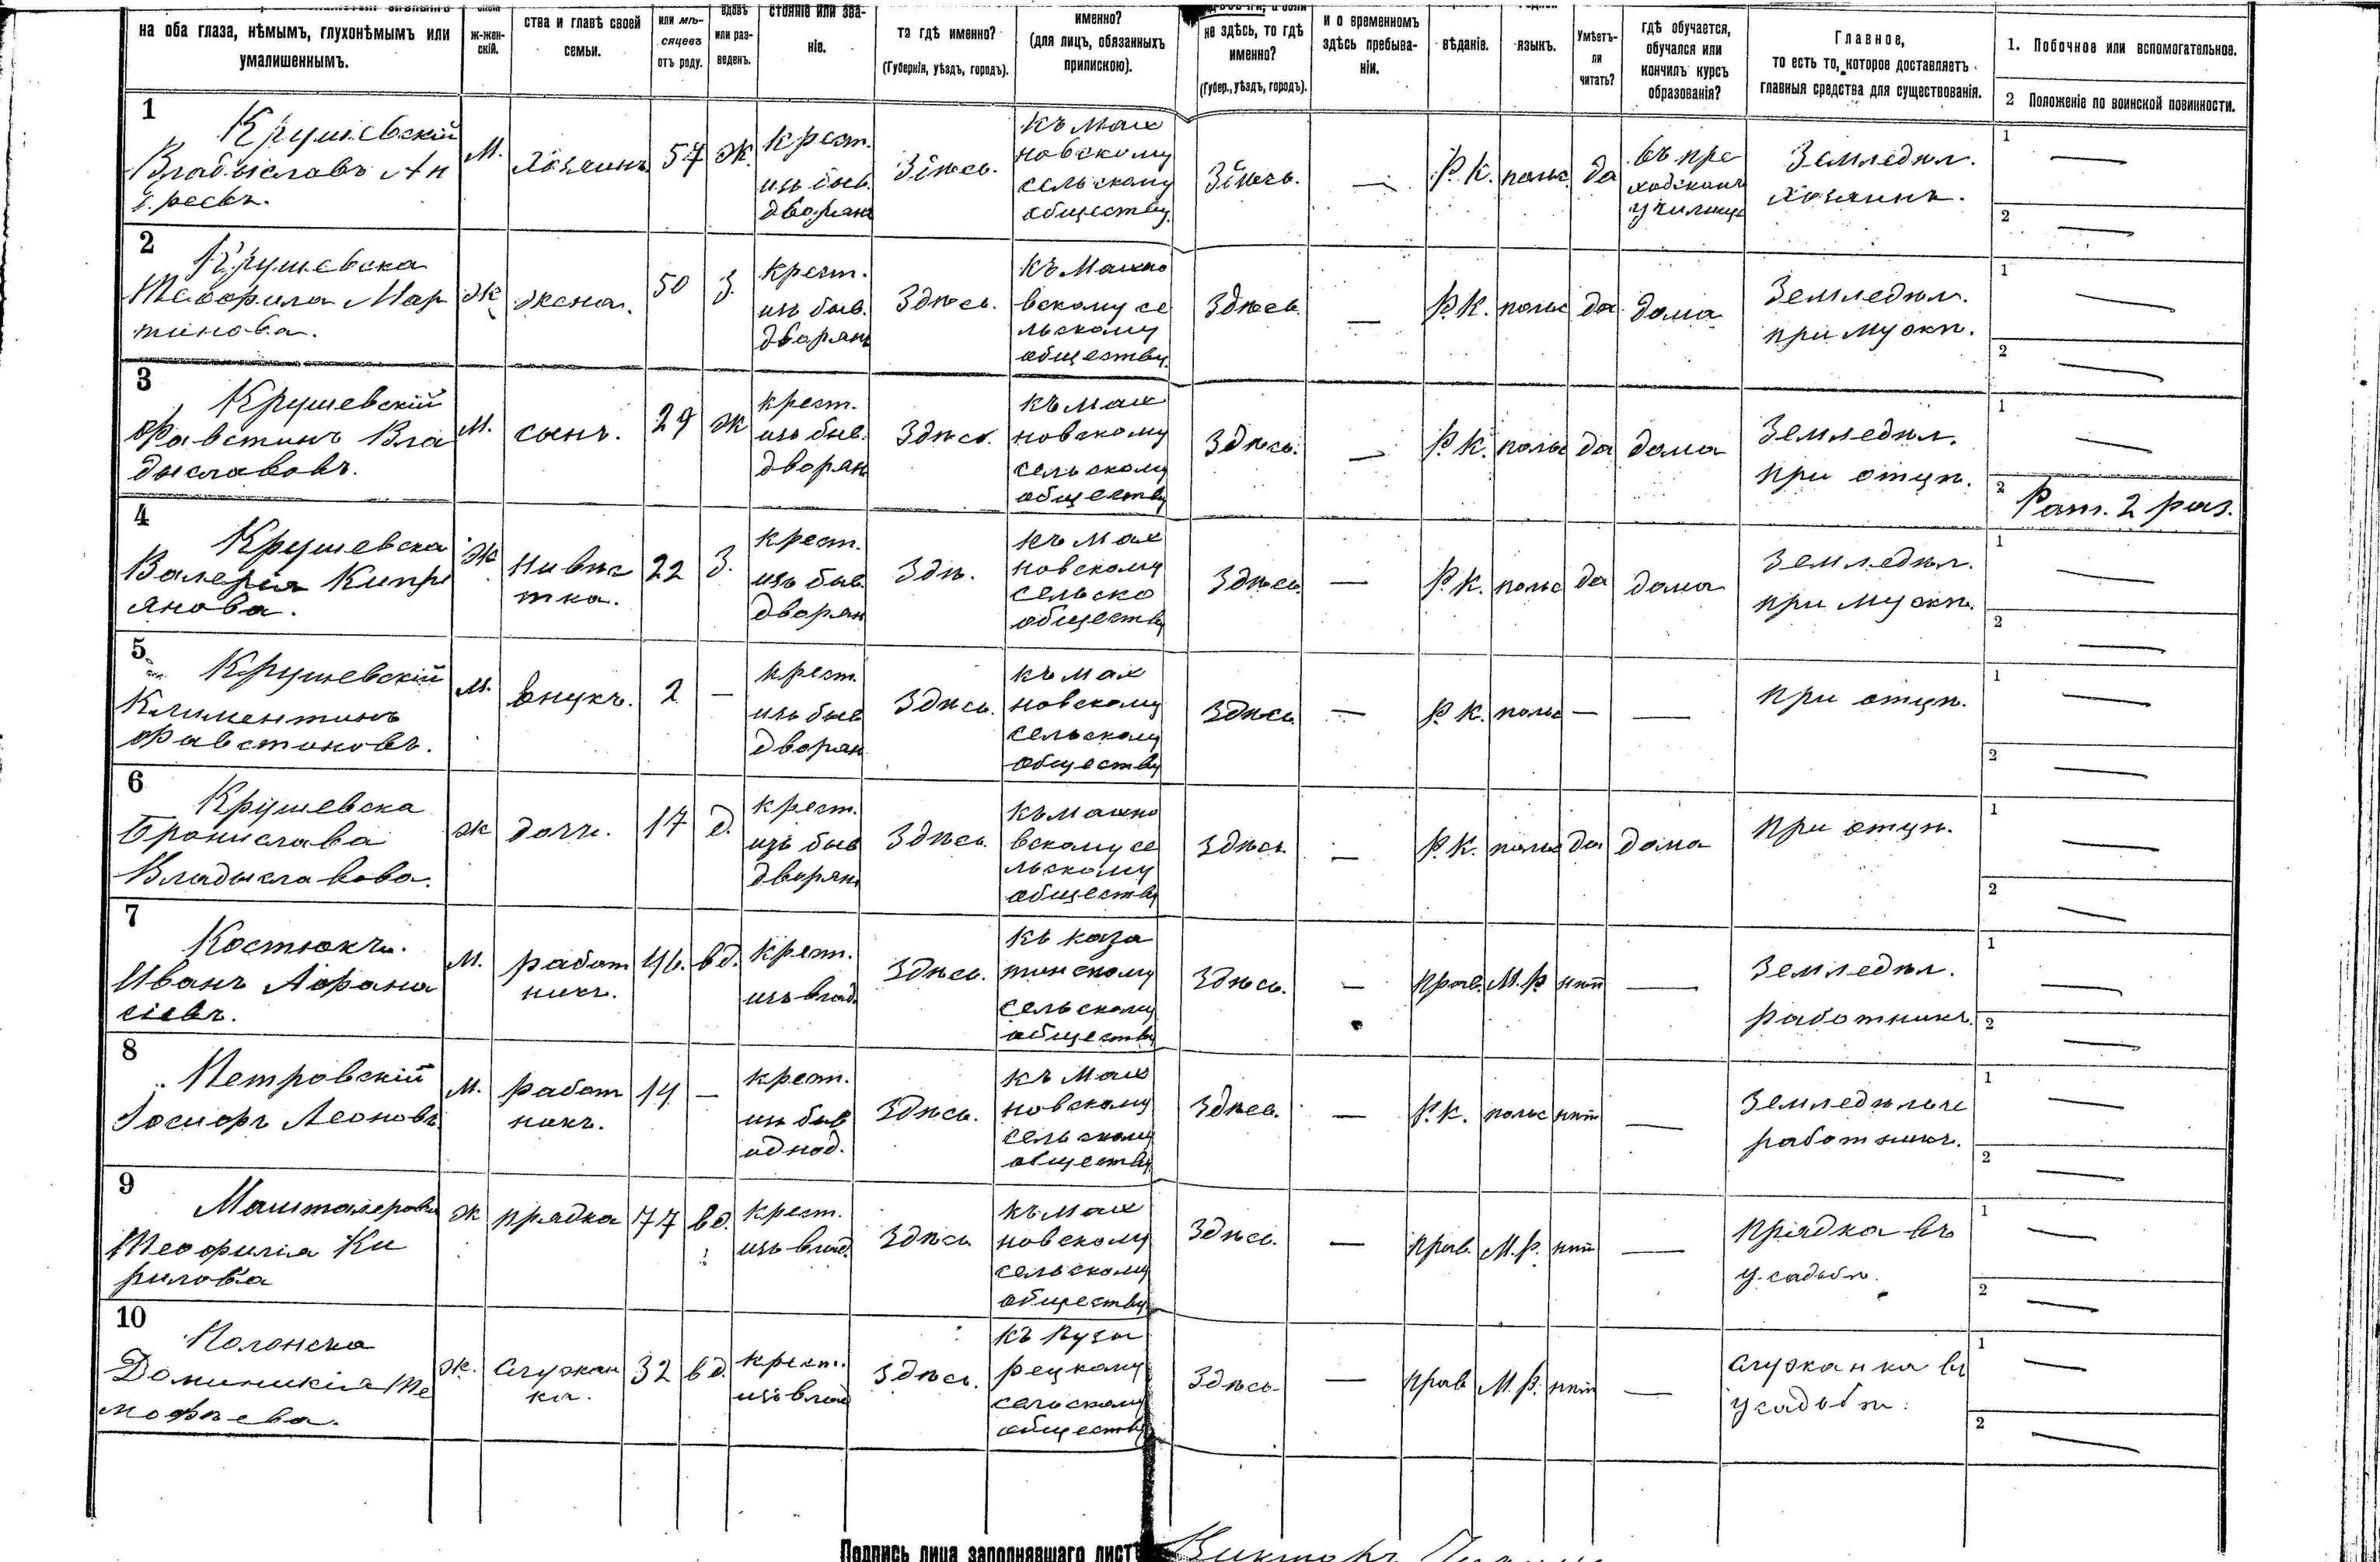 на оба глаза, нѣмымъ, глухонѣмымъ или
умалишеннымъ.
ж-жен-
скій.
ства и главѣ своей
семьи.
или мѣ-
сяцевъ
отъ роду.
вдовъ
или раз-
веденъ.
стояніе или зва-
ніе.
то гдѣ именно?
(Губернія, уѣздъ, городъ).
именно?
(для лицъ, обязанныхъ
припискою).
не здѣсь, то гдѣ
именно?
(Губер., уѣздъ, городъ).
и о временномъ
здѣсь пребыва-
ніи.
вѣданіе.
языкъ.
Умѣетъ-
ли
читать?
гдѣ обучается,
обучался или
кончилъ курсъ
образованія?
Главное,
то есть то, которое доставляетъ
главныя средства для существованія.
1. Побочное или вспомогательное.
2 Положеніе по воинской повинности.
1
Крушевскій
Владыславъ Ан
дреевъ.
М.
хозяинъ
57
Ж.
крест.
изъ быв.
дворянъ
Здѣсь.
къ Мах
новскому
сельскому
обществу.
Здѣсь.
—
Р. К.
польс.
да
въ при
ходскомъ
училище
Земледѣл.
хозяинъ.
1 —
2 —
2
Крушевска
Теофила Мар
тинова.
Ж
жена.
50
З.
крест.
изъ быв.
дворянъ
Здѣсь.
къ Махно
вскому се
льскому
обществу.
Здѣсь
—
Р. К.
польс
да
дома
Земледѣл.
при мужѣ.
1 —
2 —
3
Крушевскій
Фавстинъ Вла
дыславовъ.
М.
сынъ.
29
Ж
крест.
изъ быв.
дворян
Здѣсь.
къ Мах
новскому
сельскому
обществу
Здѣсь.
—
Р. К.
польс
да
дома
Земледѣл.
при отцѣ.
1 —
2 Рат. 2 раз.
4
Крушевска
Валерія Кипри
янова.
Ж
Нивѣс
тка.
22
З.
крест.
изъ быв.
дворян
Здѣ.
къ Мах
новскому
сельско
обществу
Здѣсь
—
Р. К.
польс
да
дома
Земледѣл.
при мужѣ.
1 —
2 —
5
Крушевскій
Климентинъ
Фавстиновъ.
М.
внукъ.
2
—
крест.
изъ быв
дворян
Здѣсь.
къ Мах
новскому
сельскому
обществу
Здѣсь
—
Р. К.
польс
—
—
при отцѣ.
1 —
2 —
6
Крушевска
Брониславa
Владыславова.
ж
дочь.
17
д.
крест.
изъ быв
дворян
Здѣсь.
къ Махно
вскому се
льскому
обществу
Здѣсь
—
Р. К.
польс
да
дома
при отцѣ.
1 —
2 —
7
Костюкъ.
Иванъ Афана
сіевъ.
М.
работ
никъ.
46.
вд.
крест.
изъ влад.
Здѣсь.
къ каза
тинскому
сельскому
обществу
Здѣсь.
—
прав.
М. Р.
нѣт
—
Земледѣл.
работникъ.
1 —
2 —
8
Петровскій
Іосифъ Леоновъ
М.
работ
никъ.
14
—
крест.
изъ быв
однод.
Здѣсь.
къ Мах
новскому
сельскому
обществу
Здѣсь.
—
Р. К.
польс
нѣт
—
Земледѣльче
работникъ.
1 —
2 —
9
Машталерова
Теофилія Ки
рилова
Ж
прядка
77
вд.
крест.
изъ влад.
Здѣсь
къ Мах
новскому
сельскому
обществу
Здѣсь.
—
прав.
М. Р.
нѣт
—
прядка въ
усадьбѣ.
1 —
2 —
10
Полонска
Доминикія Ти
мофѣева.
Ж.
служан
ка.
32
вд.
крест.
изъ влад
Здѣсь.
къ Пузы
рецкому
сельскому
обществу
Здѣсь.
—
прав
М. Р.
нѣт
—
служанка въ
усадьбѣ.
1 —
2 —
Подпись лица заполнявшаго листъ
Викторъ